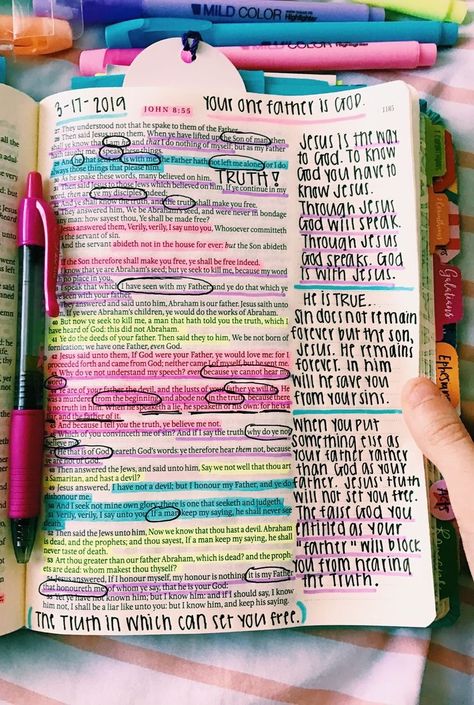 MILD COLOR Highlighter
MILD COLOR Highlighter
3-17-2019
JOHN 8:55
YOUR ONE FATHER IS GOD.
1185
27 They understood not that he spake to them of the Father.
28 Then said Jesus unto them, When ye have lifted up the Son of man,
shall ye know that I am he, and that I do nothing of myself; but as my Father
hath taught me, I speak these things.
29 And he that sent me is with me: the Father hath not left me alone; for I do
always those things that please him.
30 As he spake these words, many believed on him.
TRUTH!
31 Then said Jesus to those Jews which believed on him, If ye continue in my
word, then are ye my disciples indeed;
32 And ye shall know the truth, and the truth shall make you free.
33 They answered him, We be Abraham's seed, and were never in bondage
to any man: how sayest thou, Ye shall be made free?
34 Jesus answered them, Verily, verily, I say unto you, Whosoever committeth
sin is the servant of sin.
35 And the servant abideth not in the house for ever: but the Son abideth
ever.
36 If the Son therefore shall make you free, ye shall be free indeed.
37 I know that ye are Abraham's seed; but ye seek to kill me, because my word
hath no place in you.
38 I speak that which I have seen with my Father: and ye do that which ye
have seen with your father.
39 They answered and said unto him, Abraham is our father. Jesus saith unto
them, If ye were Abraham's children, ye would do the works of Abraham.
40 But now ye seek to kill me, a man that hath told you the truth, which I
have heard of God: this did not Abraham.
41 Ye do the deeds of your father. Then said they to him, We be not born of
fornication; we have one Father, even God.
42 Jesus said unto them, If God were your Father, ye would love me: for I
proceeded forth and came from God; neither came I of myself, but he sent me.
43 Why do ye not understand my speech? even because ye cannot hear my
word.
44 Ye are of your father the devil, and the lusts of your father ye will do. He
was a murderer from the beginning, and abode not in the truth, because there
is no truth in him. When he speaketh a lie, he speaketh of his own: for he is
a liar, and the father of it.
45 And because I tell you the truth, ye believe me not.
46 Which of you convinceth me of sin? And if I say the truth, why do ye not
believe me?
47 He that is of God heareth God's words: ye therefore hear them not, because
ye are not of God.
48 Then answered the Jews, and said unto him, Say we not well that thou art
a Samaritan, and hast a devil?
49 Jesus answered, I have not a devil; but I honour my Father, and ye do
dishonour me.
50 And I seek not mine own glory: there is one that seeketh and judgeth.
51 Verily, verily, I say unto you, If a man keep my saying, he shall never see
death.
52 Then said the Jews unto him, Now we know that thou hast a devil. Abraham
is dead, and the prophets; and thou sayest, If a man keep my saying, he shall
never taste of death.
53 Art thou greater than our father Abraham, which is dead? and the prophets
are dead: whom makest thou thyself?
54 Jesus answered, If I honour myself, my honour is nothing: it is my Father
that honoureth me; of whom ye say, that he is your God:
55 Yet ye have not known him; but I know him: and if I should say, I know
him not, I shall be a liar like unto you: but I know him, and keep his saying.
THE TRUTH IN WHICH CAN SET YOU FREE.
JESUS IS THE WAY
TO GOD. TO KNOW
GOD YOU HAVE TO
KNOW JESUS.
THROUGH JESUS
GOD WILL SPEAK.
THROUGH JESUS
GOD SPEAKS. GOD
IS WITH JESUS.
HE IS TRUE.
SIN DOES NOT REMAIN
FOREVER BUT THE SON,
JESUS. HE REMAINS
FOREVER. IN HIM
WILL HE SAVE YOU
FROM YOUR SINS.
WHEN YOU PUT
SOMETHING ELSE AS
YOUR FATHER RATHER
THAN GOD AS YOUR
FATHER. JESUS' TRUTH
WILL NOT SET YOU FREE.
THE FALSE GOD YOU
ENTITLED AS YOUR
"FATHER" WILL BLOCK
YOU FROM HEARING
THE TRUTH.
Galatians
EPHESIANS